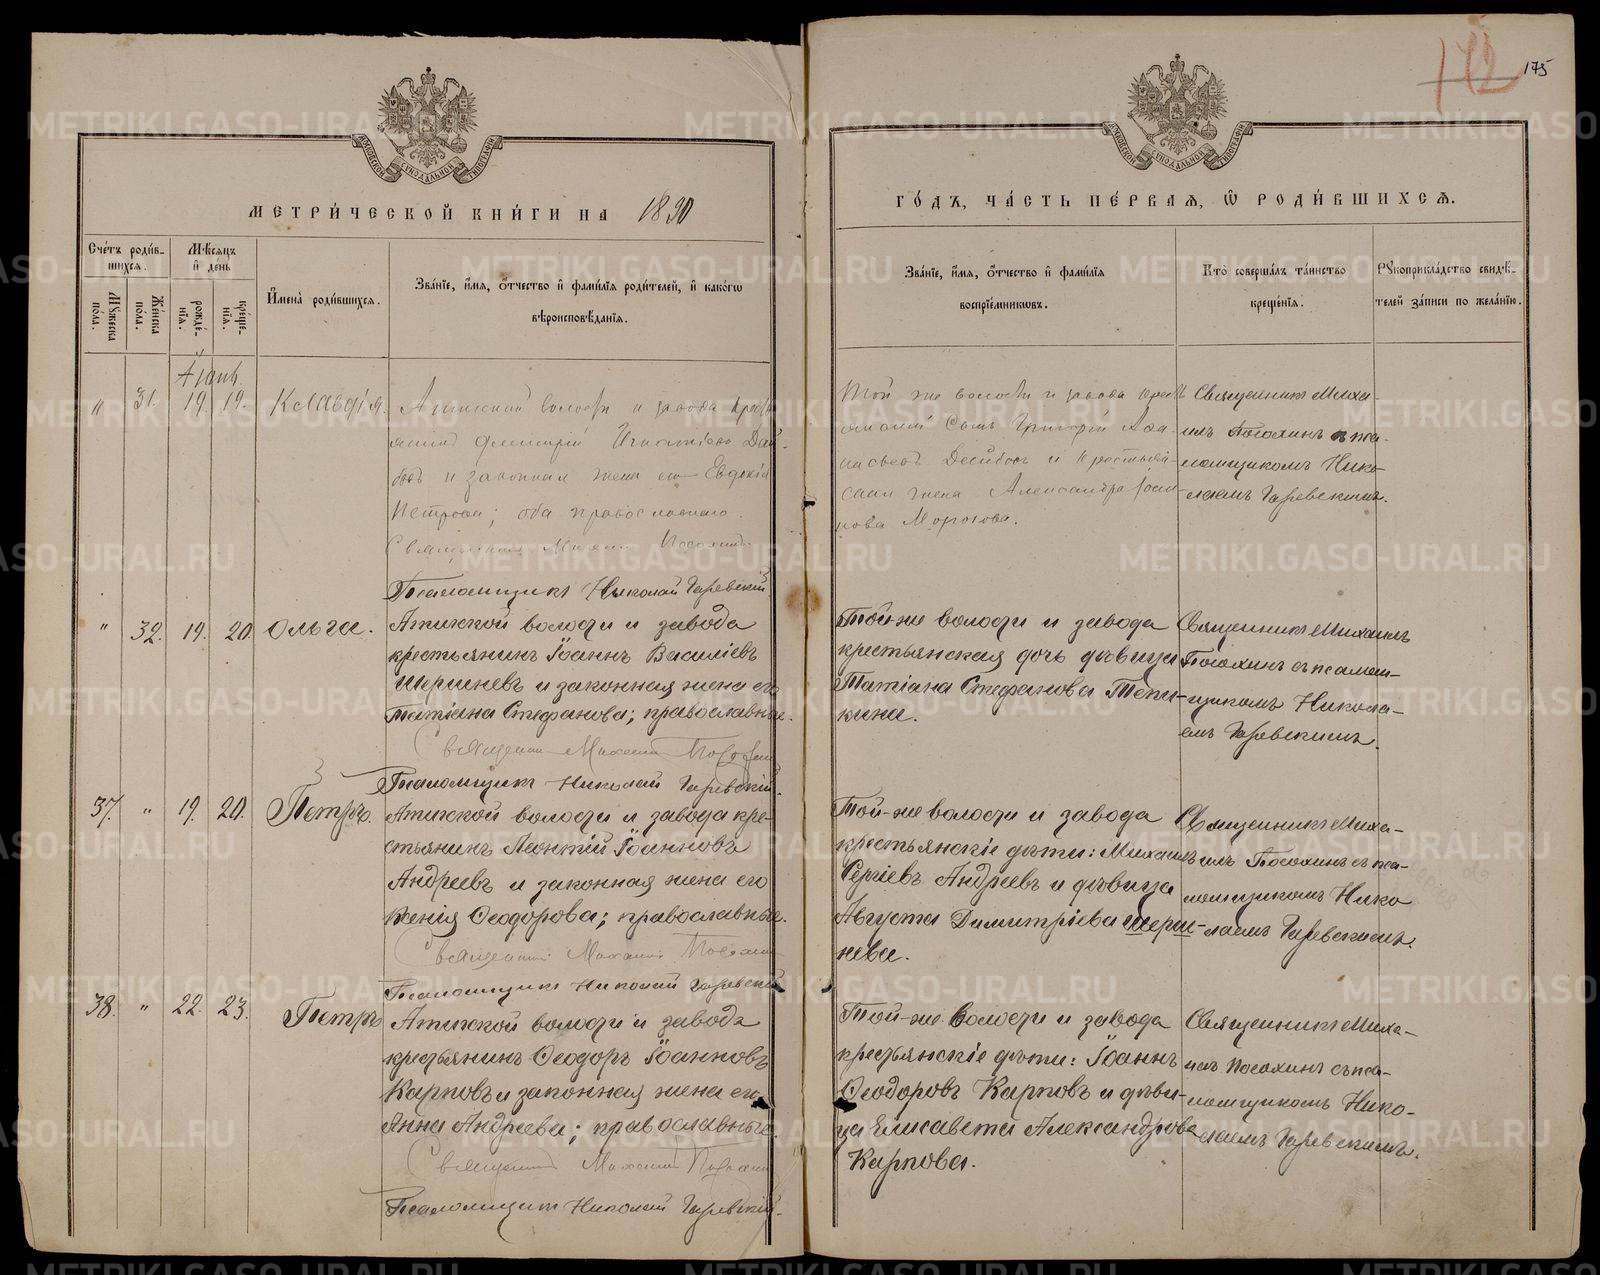 175
МОСКОВСКОЙ СУНОДАЛЬНОЙ ТИПОГРАФІИ
МОСКОВСКОЙ СУНОДАЛЬНОЙ ТИПОГРАФІИ
МЕТРИ́ЧЕСКОЙ КНИ́ГИ НА 1890
ГО́ДЪ, ЧА́СТЬ ПЕ́РВАЯ, Ѡ҆ РОДИ́ВШИХСЯ.
Счетъ роди́в-
шихся.
Мѣсяцъ
и҆ де́нь
Му́жеска
пола.
Же́нска
по́ла.
рожде́-
нія.
креще́-
нія.
И҆мена̀ роди́вшихся.
Зва́ніе, и҆́мя, о҆́тчество и҆ фами́лія роди́телей, и҆ како́гѡ
вѣроисповѣ́данія.
Зва́ніе, и҆́мя, о҆́тчество и҆ фами́лія
воспріе́мникѡвъ.
Кто̀ соверша́лъ та́инство
креще́нія.
Рꙋкоприкла́дство свидѣ́-
телей за́писи по жела́нію.
" 31. 19. 19. Клавдія.
Атижской волости и завода кресть
янинъ Димитрій Игнатіевъ
и законная жена его Евдокія
Петрова; оба православнаго.
Священникъ Михаилъ Посохинъ
Псаломщикъ Николай Гаревскій
Той же волости и завода крест
янскій сынъ Григорій Аѳа-
насьевъ и крестьян-
ская жена Александра
нова Морозова.
Священникъ Миха-
илъ Посохинъ съ пса-
ломщикомъ Нико-
лаемъ Гаревскимъ.
" 32. 19. 20. Ольга.
Атижской волости и завода
крестьянинъ Іоаннъ Василіевъ
Шершневъ и законная жена его
Татіана Стефанова; православные.
Священникъ Михаилъ Посохинъ
Псаломщикъ Николай Гаревскій.
Той-же волости и завода
крестьянская дочь дѣвица
Татіана Стефанова Тепи-
кина.
Священникъ Михаилъ
Посохинъ съ псалом-
щикомъ Никола-
емъ Гаревскимъ.
37. " 19. 20. Петръ.
Атижской волости и завода кре-
стьянинъ Леонтій Іоанновъ
Андреевъ и законная жена его
Ксенія Ѳеодорова; православные.
Священникъ Михаилъ Посохинъ
Псаломщикъ Николай Гаревскій
Той-же волости и завода
крестьянскіе дѣти: Михаилъ
Сергіевъ Андреевъ и дѣвица
Августа Димитріева Шерш-
нева.
Священникъ Миха-
илъ Посохинъ съ пса-
ломщикомъ Нико
лаемъ Гаревскимъ.
38. " 22. 23. Петръ
Атижской волости и завода
крестьянинъ Ѳеодоръ Іоанновъ
Карповъ и законная жена его
Анна Андреева; православные.
Священникъ Михаилъ Посохинъ
Псаломщикъ Николай Гаревскій.
Той-же волости и завода
крестьянскіе дѣти: Іоаннъ
Ѳеодоровъ Карповъ и дѣви-
ца Елисавета Александрова
Карпова.
Священникъ Миха-
илъ Посохинъ съ пса-
ломщикомъ Нико-
лаемъ Гаревскимъ.
METRIKI.GASO-URAL.RU